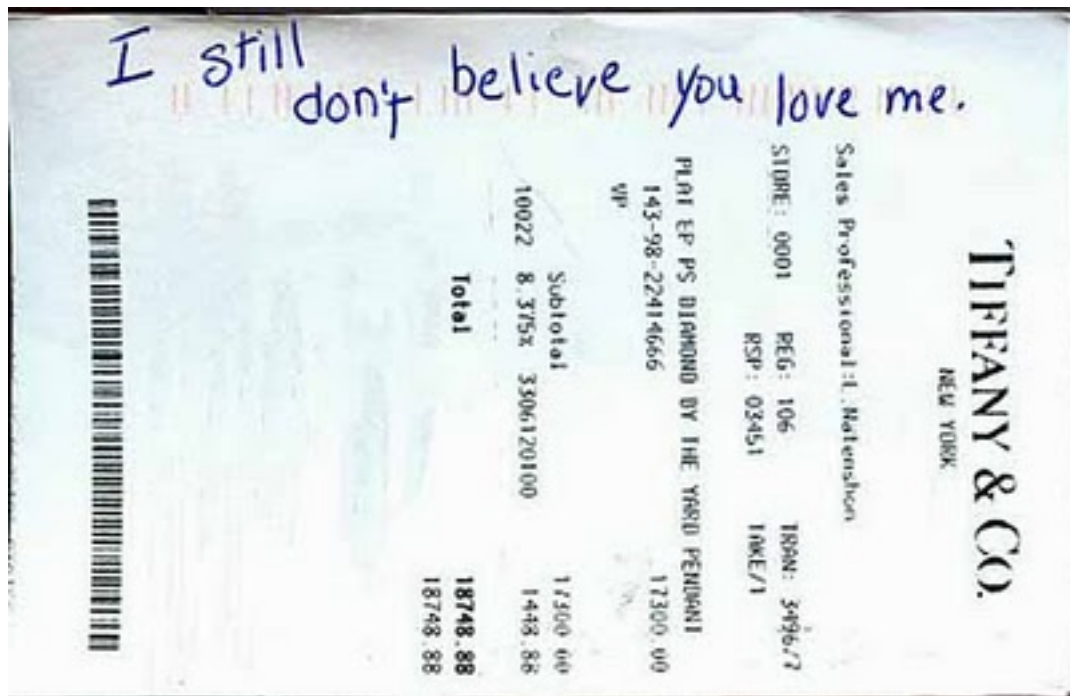 I still
don't believe you love me.
TIFFANY & CO.
NEW YORK
Sales Professional:L. Natenshon
STORE: 0001 REG: 106 TRAN: 3496/7
RSP: 03451 TAKE/1
PLAT EP PS DIAMOND BY THE YARD PENDANT
143-98-22414666 17300.00
VP
Subtotal 17300.00
10022 8.375% 3306120100 1448.88
Total 18748.88
18748.88